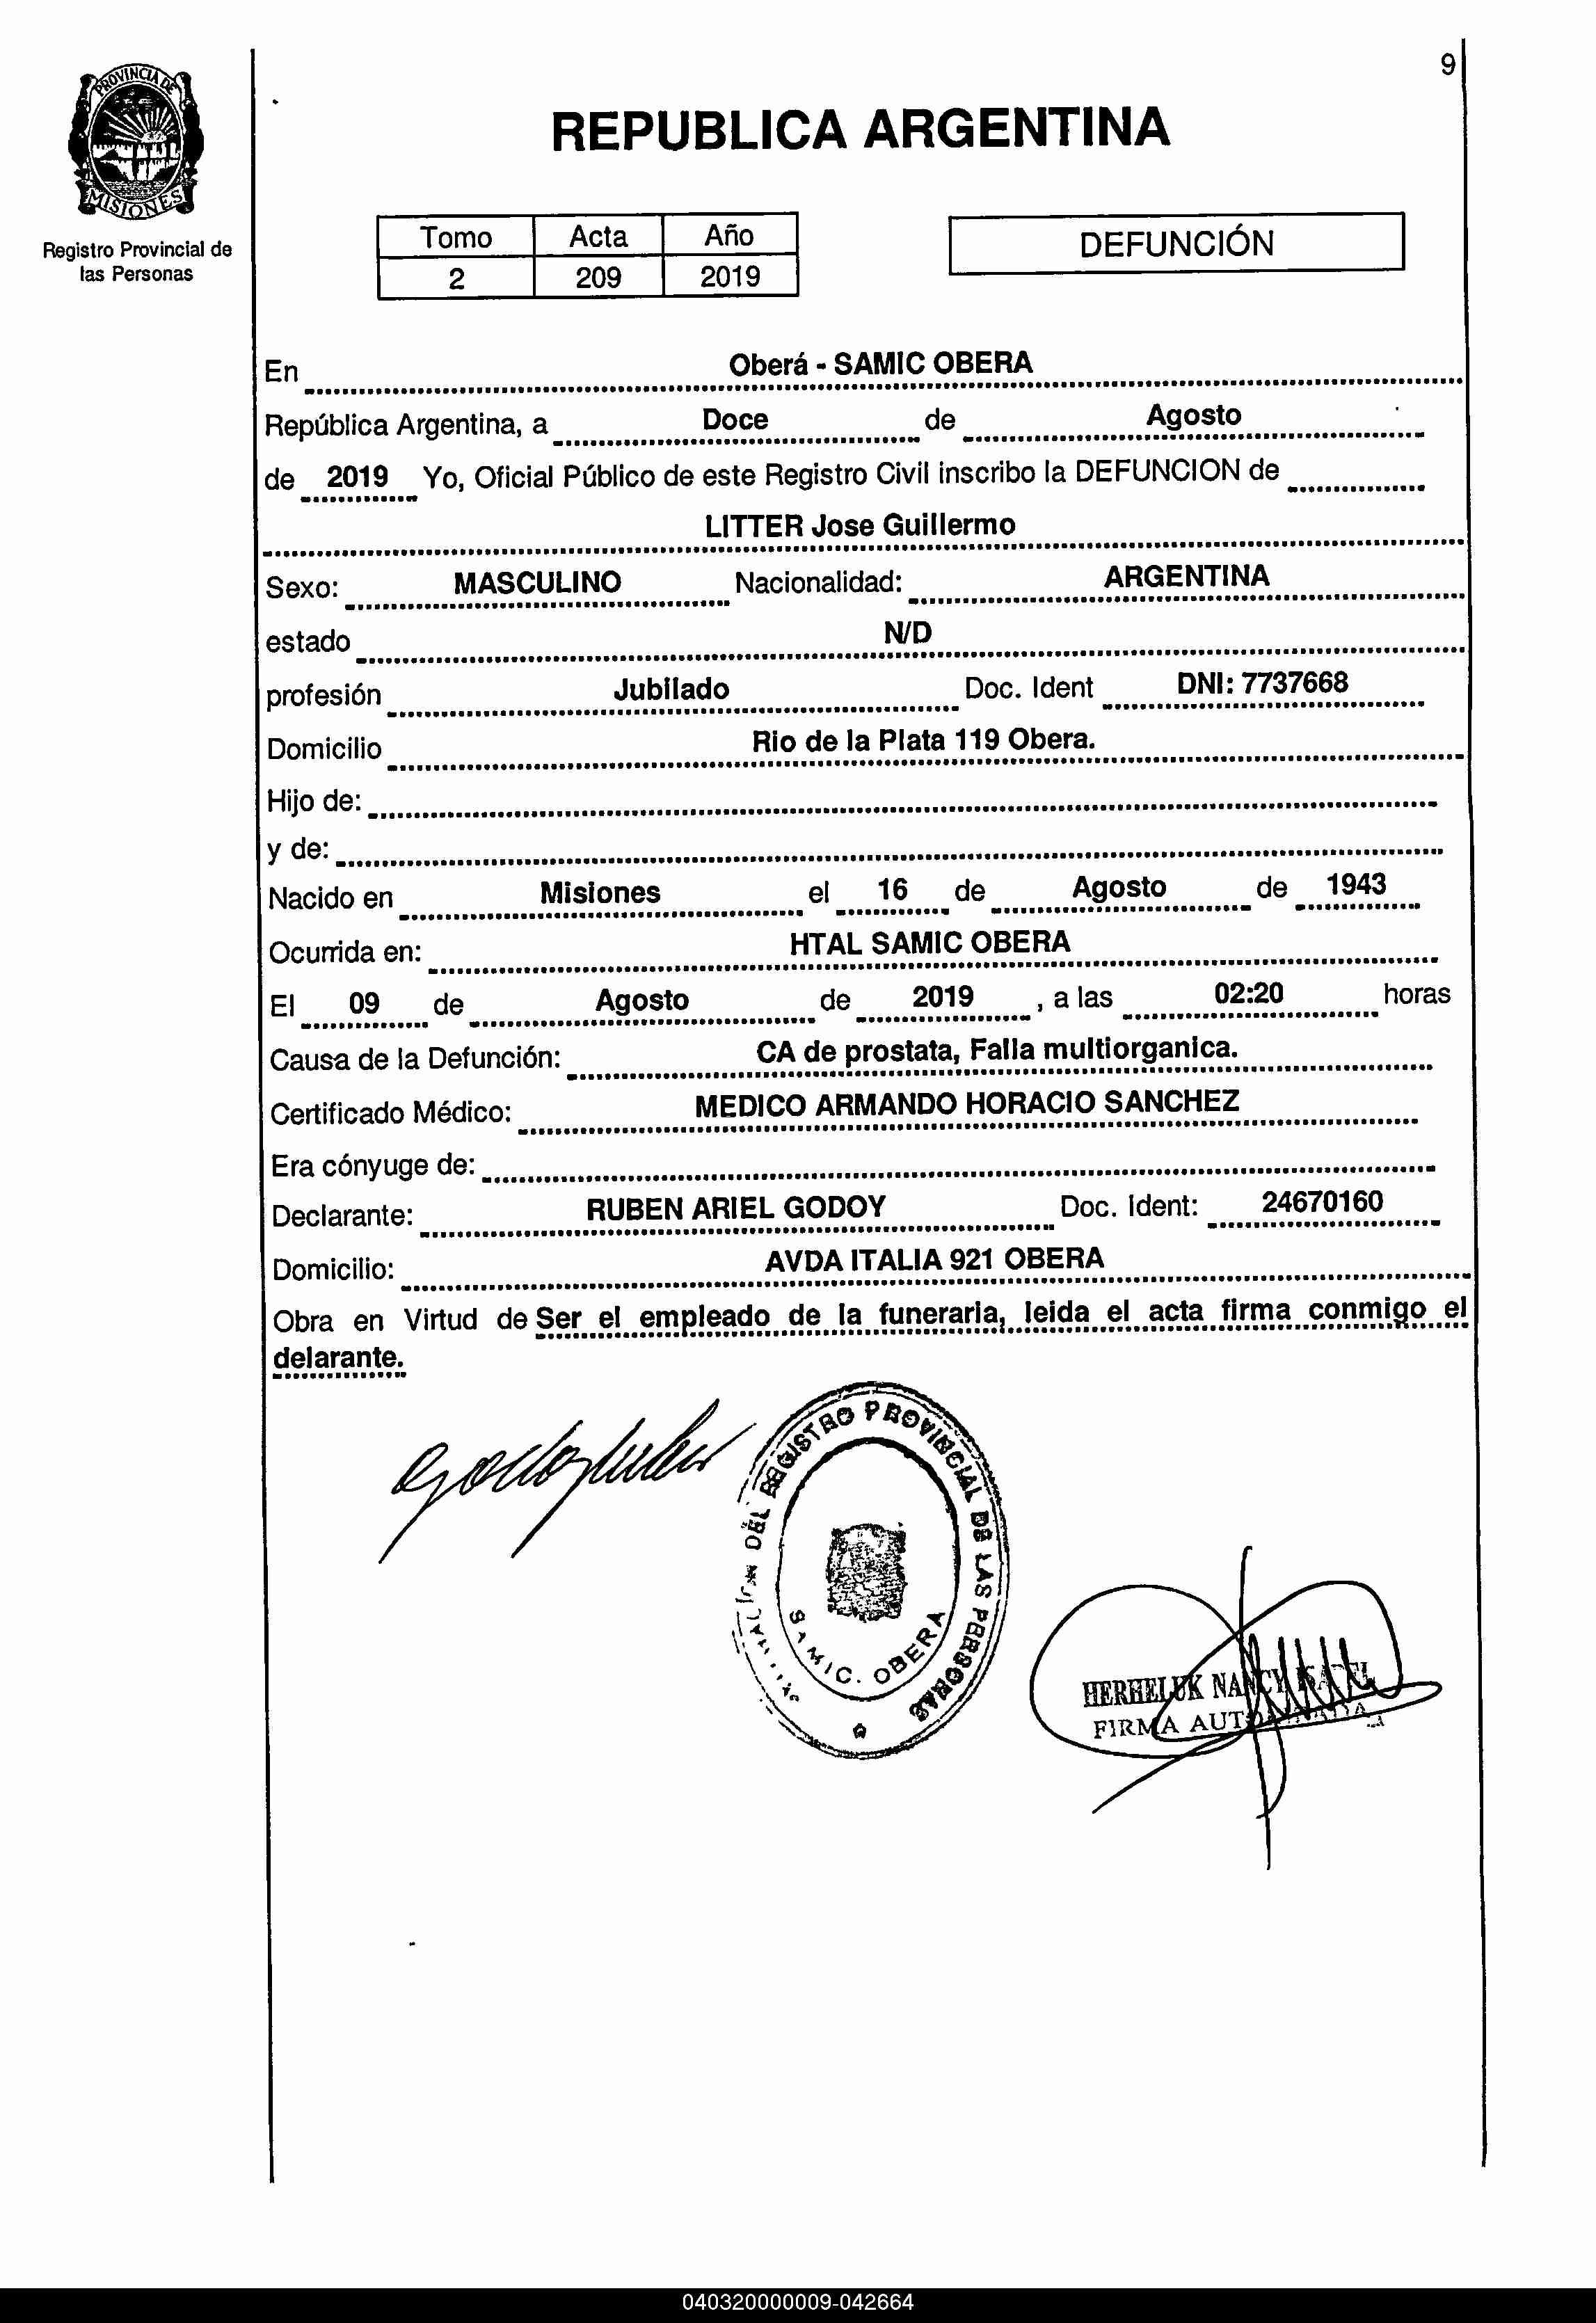 9
PROVINCIA DE
MISIONES
Registro Provincial de
las Personas
REPUBLICA ARGENTINA
Tomo Acta Año
2 209 2019
DEFUNCIÓN
En Oberá - SAMIC OBERA
República Argentina, a Doce de Agosto
de 2019 Yo, Oficial Público de este Registro Civil inscribo la DEFUNCION de
LITTER Jose Guillermo
Sexo: MASCULINO Nacionalidad: ARGENTINA
estado N/D
profesión Jubilado Doc. Ident DNI: 7737668
Domicilio Rio de la Plata 119 Obera.
Hijo de:
y de:
Nacido en Misiones el 16 de Agosto de 1943
Ocurrida en: HTAL SAMIC OBERA
El 09 de Agosto de 2019 , a las 02:20 horas
Causa de la Defunción: CA de prostata, Falla multiorganica.
Certificado Médico: MEDICO ARMANDO HORACIO SANCHEZ
Era cónyuge de:
Declarante: RUBEN ARIEL GODOY Doc. Ident: 24670160
Domicilio: AVDA ITALIA 921 OBERA
Obra en Virtud de Ser el empleado de la funeraria, leida el acta firma conmigo el
delarante.
DEL REGISTRO PROVINCIAL DE LAS PERSONAS
SAMIC. OBERA
HERHELUK NANCY ISABEL
FIRMA AUTORIZADA
040320000009-042664